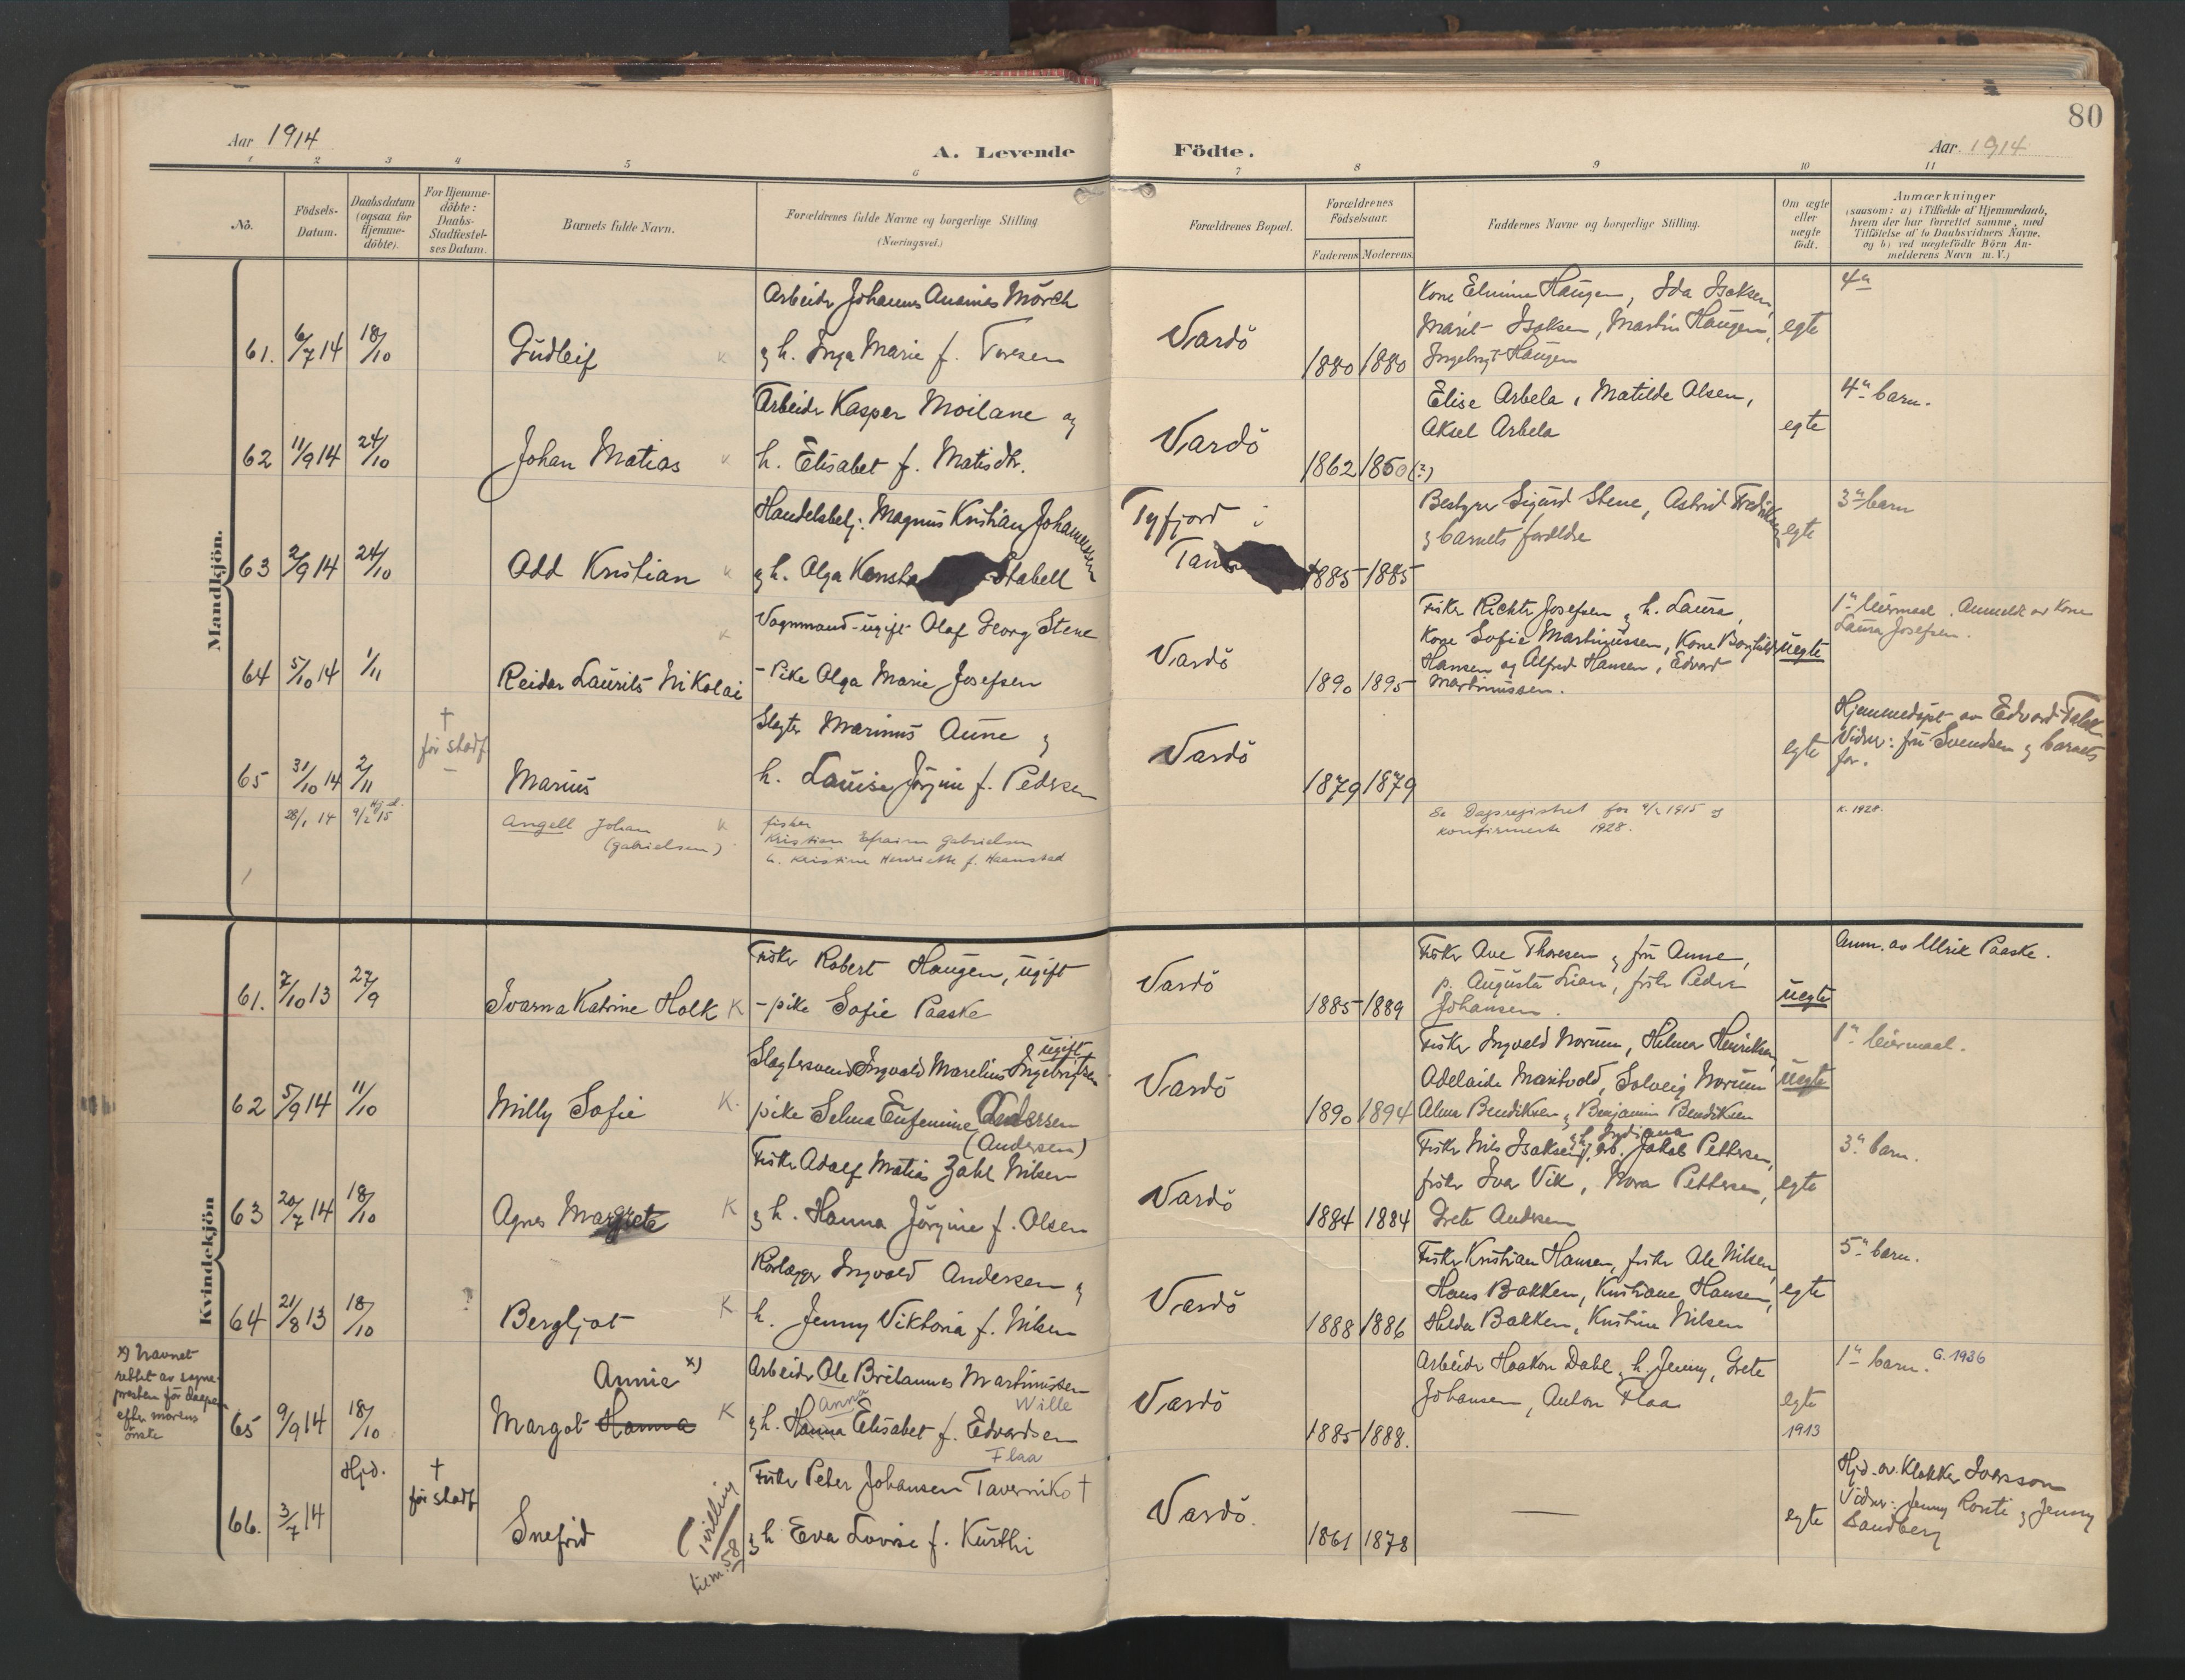 80
Aar 1914
A. Levende Födte.
Aar. 1914
1 2 3 4 5 6 7 8 9 10 11
No.
Födsels-Datum.
Daabsdatum (ogsaa for Hjemme-döbte).
For Hjemme-döbte: Daabs-Stadfæstel-ses Datum.
Barnets fulde Navn.
Forældrenes fulde Navne og borgerlige Stilling (Næringsvei.)
Forældrenes Bopæl.
Forældrenes Födselsaar.
Faderens Moderens
Faddernes Navne og borgerlige Stilling.
Om ægte eller uægte födt.
Anmærkninger
(saasom: a) i Tilfælde af Hjemmedaab,
hvem der har forrettet samme, med
Tilföielse af to Daabsvidners Navne.
og b) ved uægtefödte Börn An-
melderens Navn m. V.)
Mandkjön.
61. 6/7 14 18/10 Gudleif K
Arbeider Johannes Ananias Mörch
g h. Inga Marie f. Toresen
Vardö 1880 1880
Kone Elmine Haugen, Ida Isaksen,
Marit Isaksen, Martin Haugen,
Ingebrgt Haugen
egte
4n
62 11/9 14 24/10 Johan Matias K
Arbeider Kasper Moilane og
h. Elisabet f. Matisdtr.
Vardö 1862 1860 (?)
Elise Arbela, Matilde Olsen,
Aksel Arbela
egte
4n barn.
63 2/9 14 24/10 Odd Kristian K
Handelsbetj. Magnus Kristian Johannessen
g h. Olga Konsta Stabell
Tyfjord i
Tan
1885 1885
Bestyrer Sigurd Stene, Astrid
g barnets foreldre
egte
3n barn
64 5/10 14 1/11 Reidar Laurits Nikolai K
Vognmand-ugift Olaf Georg Stene
- Pike Olga Marie Josefsen
Vardö 1890 1895
Fisker Richter Josefsen g h. Laura,
Kone Sofie Martinussen, Kone Borghild
Hansen og Alfred Hansen, Edvard
Martinussen.
uegte
1n leiermaal. Anmeldt av Kone
Laura Josefsen.
65 31/10 14 2/11
†
för stadf.
Marius
Slagter Marinus Aune g
h. Lauise Jörgine f. Pedersen
Vardö 1879 1879
egte
Hjemmedöpt av Edvard Falck
Vidner: fru Svendsen g barnets
far.
28/1 14 9/2 15 Hj.d.
Angell Johan
(Gabrielsen) K
fisker
Kristian Efraim Gabrielsen
h. Kristine Henriette f. Haanstad
Se Dagsregistret for 9/2 1915 og
konfirmerte 1928.
K. 1928.
Kvindekjön
61. 7/10 13 27/9 Svarna Katrine Holk K
Fisker Robert Haugen, ugift
- pike Sofie Paaske
Vardö 1885 1889
Fisker Ove Thoresen g fru Anne,
p. Augusta Lian, fisker Peder
Johansen.
uegte
Anm. av Ulrik Paaske.
62 5/9 14 11/10 Milly Sofie K.
Slagtersvend Ingvald Marelius Ingebrigtsen ugift
pike Selma Eufemine Andersen
(Andersen)
Vardö 1890 1894
Fisker Ingvald Norum, Helmer Henriksen,
Adelaide Maritvold, Solveig Norum
Alma Bendiksen g Benjamin Bendiksen
uegte
1n leiermaal.
63 20/7 14 18/10 Agnes Margrete K
Fisker Adolf Matias Zahl Nilsen
g h. Hanna Jörgine f. Olsen
Vardö 1884 1884
Fisker Nils Isaksen g h. Indiana, arb. Jakob Pettersen,
fisker Ivar Vik, Nora Pettersen,
Grete Andersen
egte
3n barn.
64 21/8 13 18/10 ? Bergljot K
Rorlægger Ingvald Andersen g
h. Jenny Viktoria f. Nilsen
Vardö 1888 1886
Fisker Kristian Hansen, fisker Ole Nilsen,
Hans Bakken, Kristiane Hansen,
Hilda Bakken, Kristine Nilsen
egte
5n barn.
x) Navnet
rettet av sogne-
presten för daapen
efter morens
önske
65 9/9 14 18/10 Margot Hanna Annie x) K
Arbeider Ole Britannes Martinussen
Wille
g h. Hanna Anna Elisabet f. Edvardsen
Flaa
Vardö 1885 1888.
Arbeider Haakon Dahl, h. Jenny, Grete
Johansen, Anton Flaa
egte
1913
1n barn. G. 1936
66. 3/7 14 Hjd.
†
för stadf
Snefrid
(Tvilling
til nr. 58
Fisker Peter Johansen Taverniko †
g h Eva Lovise f. Kurthi
Vardö. 1861 1878
egte
Hjd. av Klokker Ivarsson
Vidner: Jenny Ronti g Jenny
Sandberg